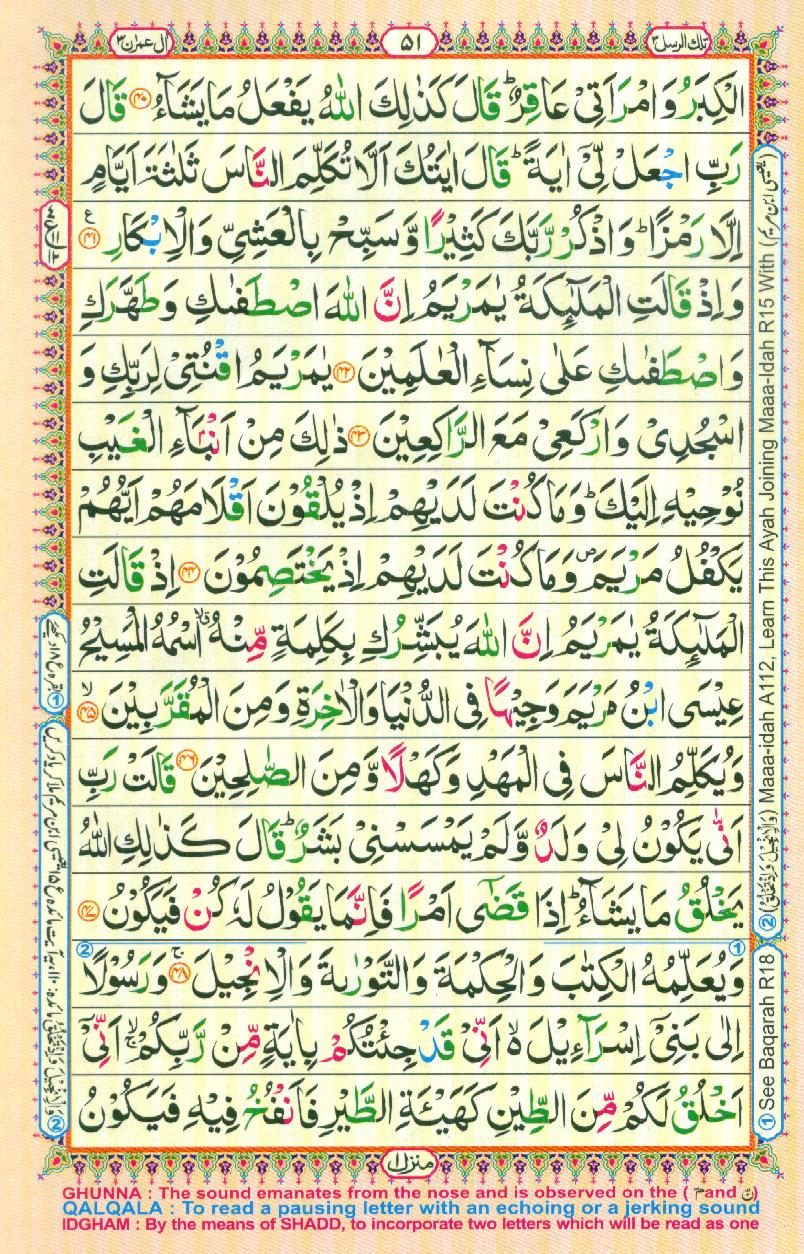 تلك الرسل ۳
۵۱
ال عمرٰن ۳
الْكِبَرُ وَامْرَاَتِیْ عَاقِرٌ ؕ قَالَ كَذٰلِكَ اللّٰهُ یَفْعَلُ مَا یَشَآءُ ﴿۴۰﴾ قَالَ
رَبِّ اجْعَلْ لِّیْۤ اٰیَةً ؕ قَالَ اٰیَتُكَ اَلَّا تُكَلِّمَ النَّاسَ ثَلٰثَةَ اَیَّامٍ
اِلَّا رَمْزًا ؕ وَاذْكُرْ رَّبَّكَ كَثِیْرًا وَّ سَبِّحْ بِالْعَشِیِّ وَالْاِبْكَارِ ﴿۴۱﴾
وَاِذْ قَالَتِ الْمَلٰٓىِٕكَةُ یٰمَرْیَمُ اِنَّ اللّٰهَ اصْطَفٰىكِ وَطَهَّرَكِ
وَاصْطَفٰىكِ عَلٰی نِسَآءِ الْعٰلَمِیْنَ ﴿۴۲﴾ یٰمَرْیَمُ اقْنُتِیْ لِرَبِّكِ وَ
اسْجُدِیْ وَارْكَعِیْ مَعَ الرّٰكِعِیْنَ ﴿۴۳﴾ ذٰلِكَ مِنْ اَنْۢبَآءِ الْغَیْبِ
نُوْحِیْهِ اِلَیْكَ ؕ وَمَا كُنْتَ لَدَیْهِمْ اِذْ یُلْقُوْنَ اَقْلَامَهُمْ اَیُّهُمْ
یَكْفُلُ مَرْیَمَ ۪ وَمَا كُنْتَ لَدَیْهِمْ اِذْ یَخْتَصِمُوْنَ ﴿۴۴﴾ اِذْ قَالَتِ
الْمَلٰٓىِٕكَةُ یٰمَرْیَمُ اِنَّ اللّٰهَ یُبَشِّرُكِ بِكَلِمَةٍ مِّنْهُ ۖۗ اسْمُهُ الْمَسِیْحُ
عِیْسَی ابْنُ مَرْیَمَ وَجِیْهًا فِی الدُّنْیَا وَالْاٰخِرَةِ وَمِنَ الْمُقَرَّبِیْنَ ﴿۴۵﴾ۙ
وَیُكَلِّمُ النَّاسَ فِی الْمَهْدِ وَكَهْلًا وَّ مِنَ الصّٰلِحِیْنَ ﴿۴۶﴾ قَالَتْ رَبِّ
اَنّٰی یَكُوْنُ لِیْ وَلَدٌ وَّلَمْ یَمْسَسْنِیْ بَشَرٌ ؕ قَالَ كَذٰلِكِ اللّٰهُ
یَخْلُقُ مَا یَشَآءُ ؕ اِذَا قَضٰۤی اَمْرًا فَاِنَّمَا یَقُوْلُ لَهٗ كُنْ فَیَكُوْنُ ﴿۴۷﴾
② ①
وَیُعَلِّمُهُ الْكِتٰبَ وَالْحِكْمَةَ وَالتَّوْرٰىةَ وَالْاِنْجِیْلَ ﴿۴۸﴾ۚ وَرَسُوْلًا
اِلٰی بَنِیْۤ اِسْرَآءِیْلَ ۙ۬ اَنِّیْ قَدْ جِئْتُكُمْ بِاٰیَةٍ مِّنْ رَّبِّكُمْ ۙ اَنِّیْۤ
اَخْلُقُ لَكُمْ مِّنَ الطِّیْنِ كَهَیْـَٔةِ الطَّیْرِ فَاَنْفُخُ فِیْهِ فَیَكُوْنُ
منزل ۱
① See Baqarah R18 ② (وَالْاِنْجِیْلَ وَاِذْ تَخْلُقُ) Maaa-idah A112, Learn This Ayah Joining Maaa-Idah R15 With (یٰعیسی ابن مریم)
GHUNNA : The sound emanates from the nose and is observed on the ( مّ and نّ )
QALQALA : To read a pausing letter with an echoing or a jerking sound
IDGHAM : By the means of SHADD, to incorporate two letters which will be read as one